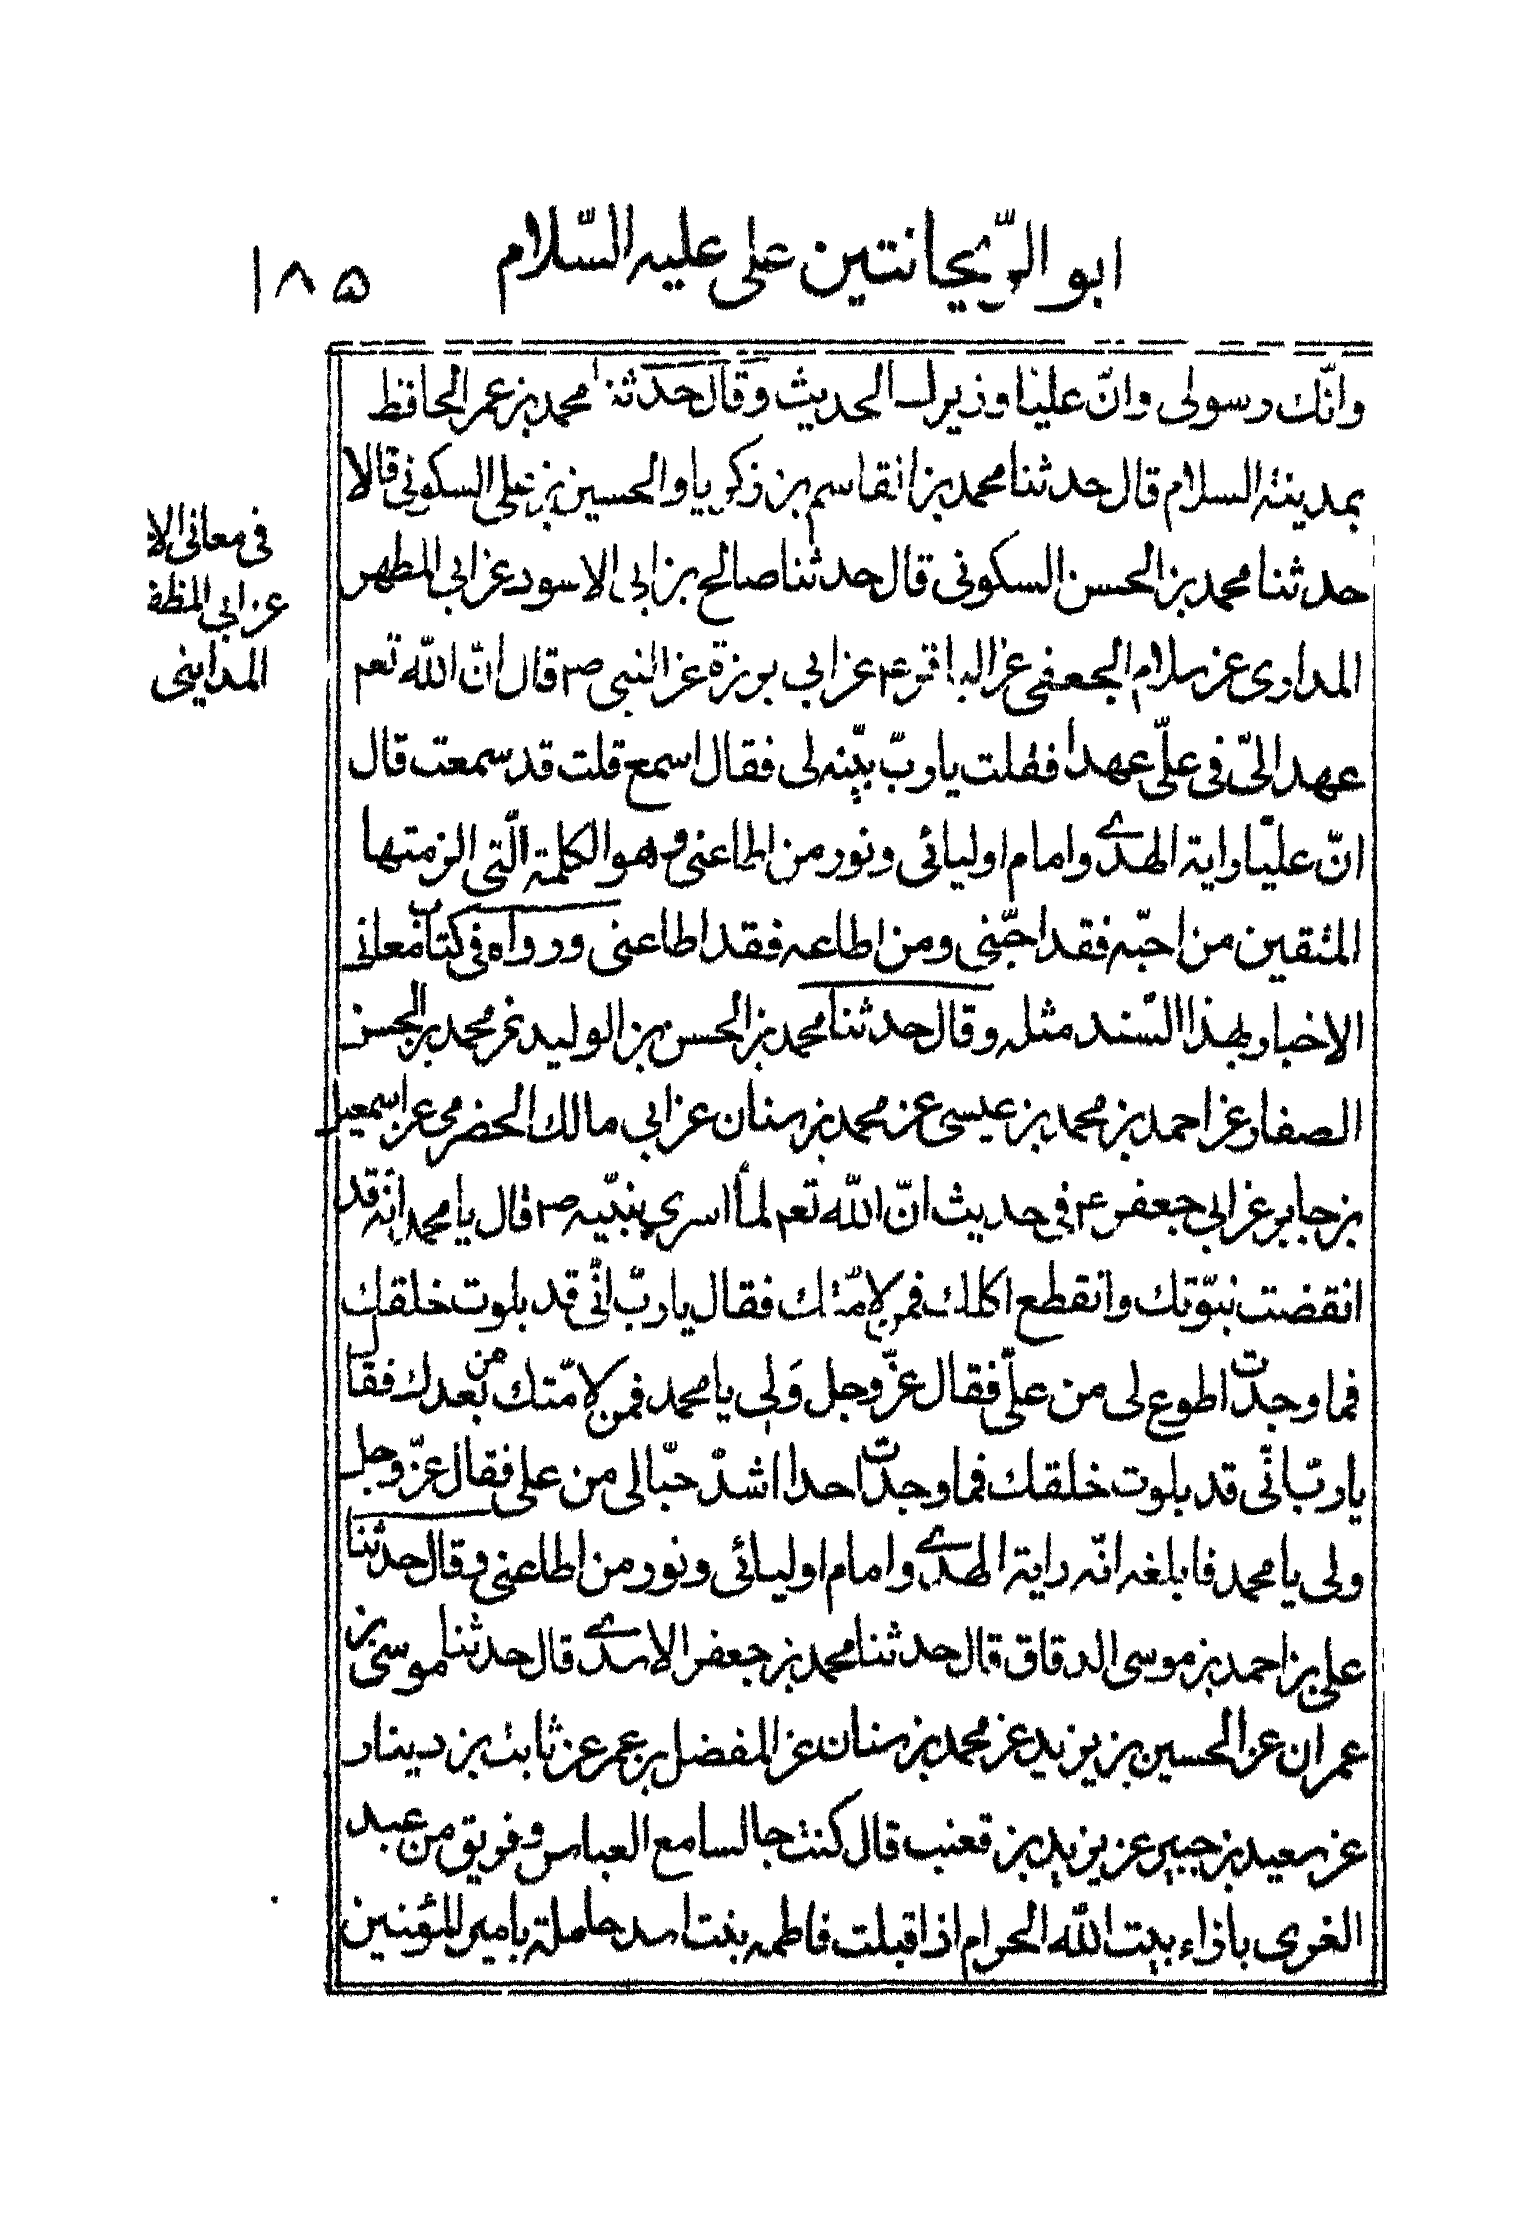 ابو الرّيحانتين على عليه السّلام ١٨٥
وانّك رسولى وانّ عليّا وزيرك الحديث وقال حدثنا محمد بن عمر الحافظ
بمدينة السلام قال حدثنا محمد بن القاسم بن زكريا والحسين بن على السكونى قالا
حدثنا محمد بن الحسن السكونى قال حدثنا صالح بن ابى الاسود عن ابى المطهر
المدارى عن سلام الجعفى عن الباقر ع عن ابى برزة عن النبى ص قال انّ الله تعم
عهد الىّ فى علىّ عهدا فقلت يا ربّ بيّنه لى فقال اسمع قلت قد سمعت قال
انّ عليّا راية الهدى وامام اوليائى ونور من اطاعنى وهو الكلمة الّتى الزمتها
المتقين من احبّه فقد احبّنى ومن اطاعه فقد اطاعنى ورواه فى كتاب معانى
الاخبار بهذا السّند مثله وقال حدثنا محمد بن الحسن بن الوليد عن محمد بن الحسن
الصفار عن احمد بن محمد بن عيسى عن محمد بن سنان عن ابى مالك الحضرمى عن اسمعيل
بن جابر عن ابى جعفر ع فى حديث انّ الله تعم لما اسرى بنبيّه ص قال يا محمد انه قد
انقضت نبوّتك وانقطع اكلك فمن لامّتك فقال يا ربّ انّى قد بلوت خلقك
فما وجدت اطوع لى من علىّ فقال عزّ وجل ولى يا محمد فمن لامّتك من بعدك فقال
يا ربّ انّى قد بلوت خلقك فما وجدت احدا اشدّ حبّا لى من على فقال عزّ وجل
ولى يا محمد فابلغه انّه راية الهدى وامام اوليائى ونور من اطاعنى وقال حدثنا
على بن احمد بن موسى الدقاق قال حدثنا محمد بن جعفر الاسدى قال حدثنا موسى بن
عمران عن الحسين بن يزيد عن محمد بن سنان عن المفضل بن عمر عن ثابت بن دينار
عن سعيد بن جبير عن يزيد بن قعنب قال كنت جالسا مع العباس وفريق من عبد
العزى بازاء بيت الله الحرام اذ اقبلت فاطمه بنت اسد حاملة بامير المؤمنين
فى معانى الا
عن ابى المظفر
المداينى